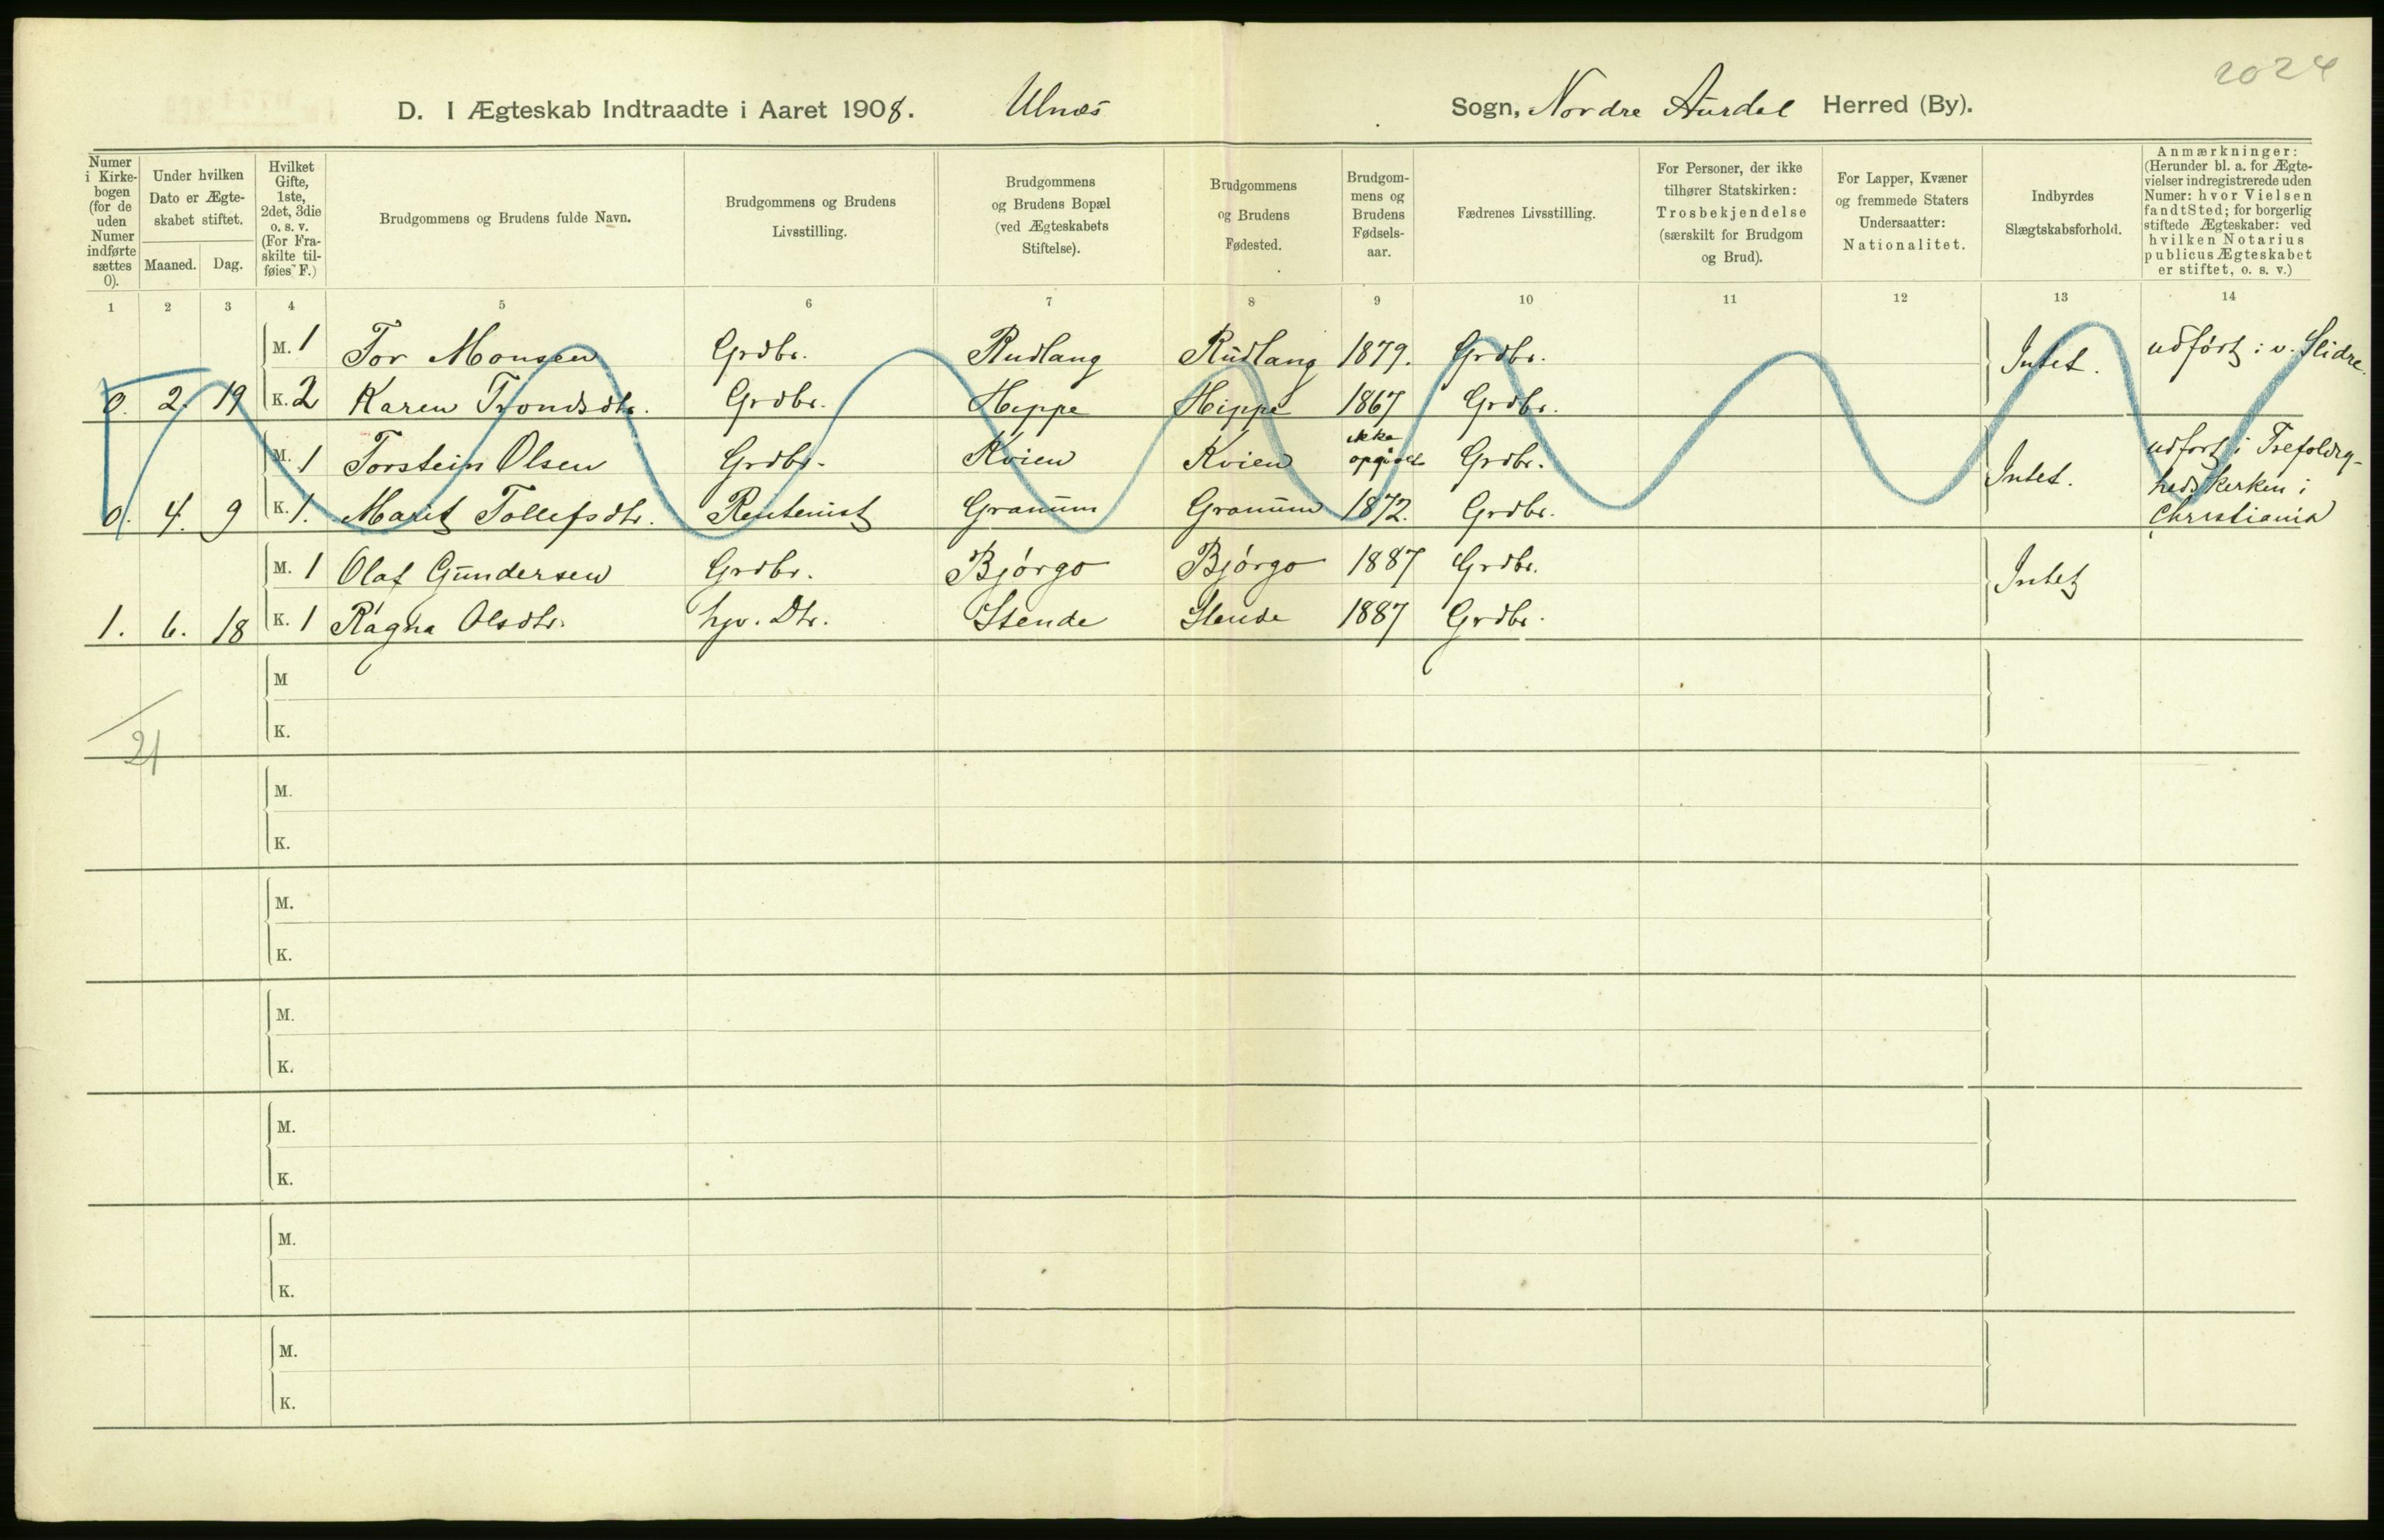 2024
D. I Ægteskab Indtraadte i Aaret 1908. Ulnæs Sogn, Nordre Aurdal Herred (By).
Numer i Kirke-bogen (for de uden Numer indførte sættes 0).
Under hvilken Dato er Ægte-skabet stiftet.
Maaned. Dag.
Hvilket Gifte, 1ste, 2det, 3die o. s. v. (For Fra-skilte til-føies F.)
Brudgommens og Brudens fulde Navn.
Brudgommens og Brudens Livsstilling.
Brudgommens og Brudens Bopæl (ved Ægteskabets Stiftelse).
Brudgommens og Brudens Fødested.
Brudgom-mens og Brudens Fødsels-aar.
Fædrenes Livsstilling.
For Personer, der ikke tilhører Statskirken: Trosbekjendelse (særskilt for Brudgom og Brud).
For Lapper, Kvæner og fremmede Staters Undersaatter: Nationalitet.
Indbyrdes Slægtskabsforhold.
Anmærkninger: (Herunder bl. a. for Ægte-vielser indregistrerede uden Numer: hvor Vielsen fandt Sted; for borgerlig stiftede Ægteskaber: ved hvilken Notarius publicus Ægteskabet er stiftet, o. s. v.)
1 2 3 4 5 6 7 8 9 10 11 12 13 14
M. 1 Tor Monsen Grdbr. Rudlang Rudlang 1879. Grdbr. Intet. udført i v. Slidre.
0. 2. 19 K. 2 Karen Trondsdtr. Grdbr. Hippe Hippe 1867 Grdbr.
M. 1 Torstein Olsen Grdbr. Kvien Kvien ikke opgivet Grdbr. Intet. udført i Trefoldig-
0. 4. 9 K. 1. Marit Tollefsdtr. Rentenist Granum Granum 1872. Grdbr. hedskirken i
Christiania
M. 1 Olaf Gundersen Grdbr. Bjørgo Bjørgo 1887 Grdbr. Intet
1. 6. 18 K. 1 Ragna Olsdtr. hjv. Dtr. Stende Stende 1887 Grdbr.
M
K.
21
M.
K.
M.
K.
M.
K.
M.
K.
M.
K.
M.
K.